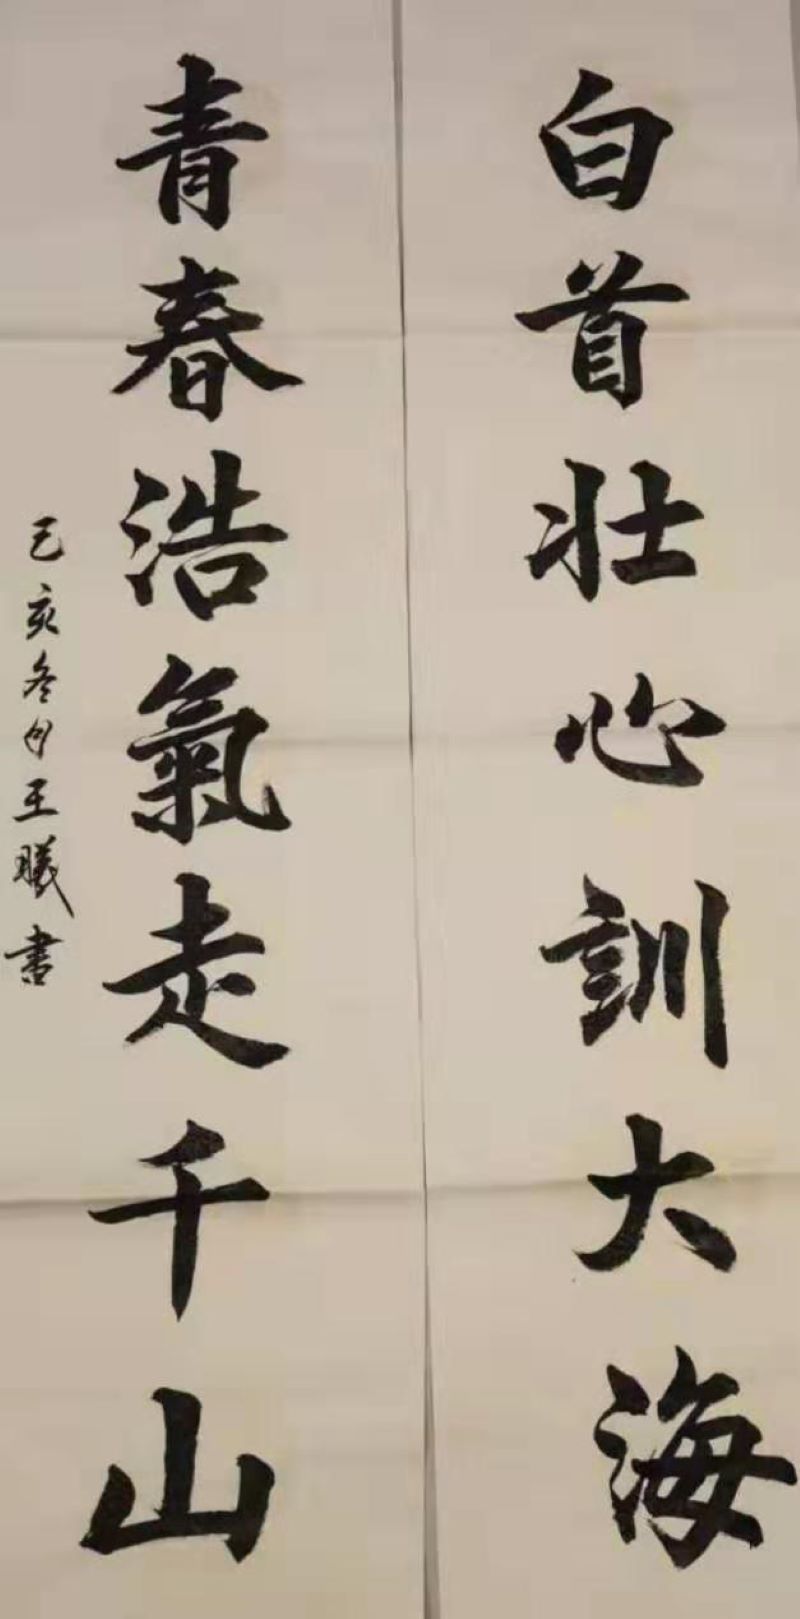 白首壯心訓大海
青春浩氣走千山
己亥冬月王曦書